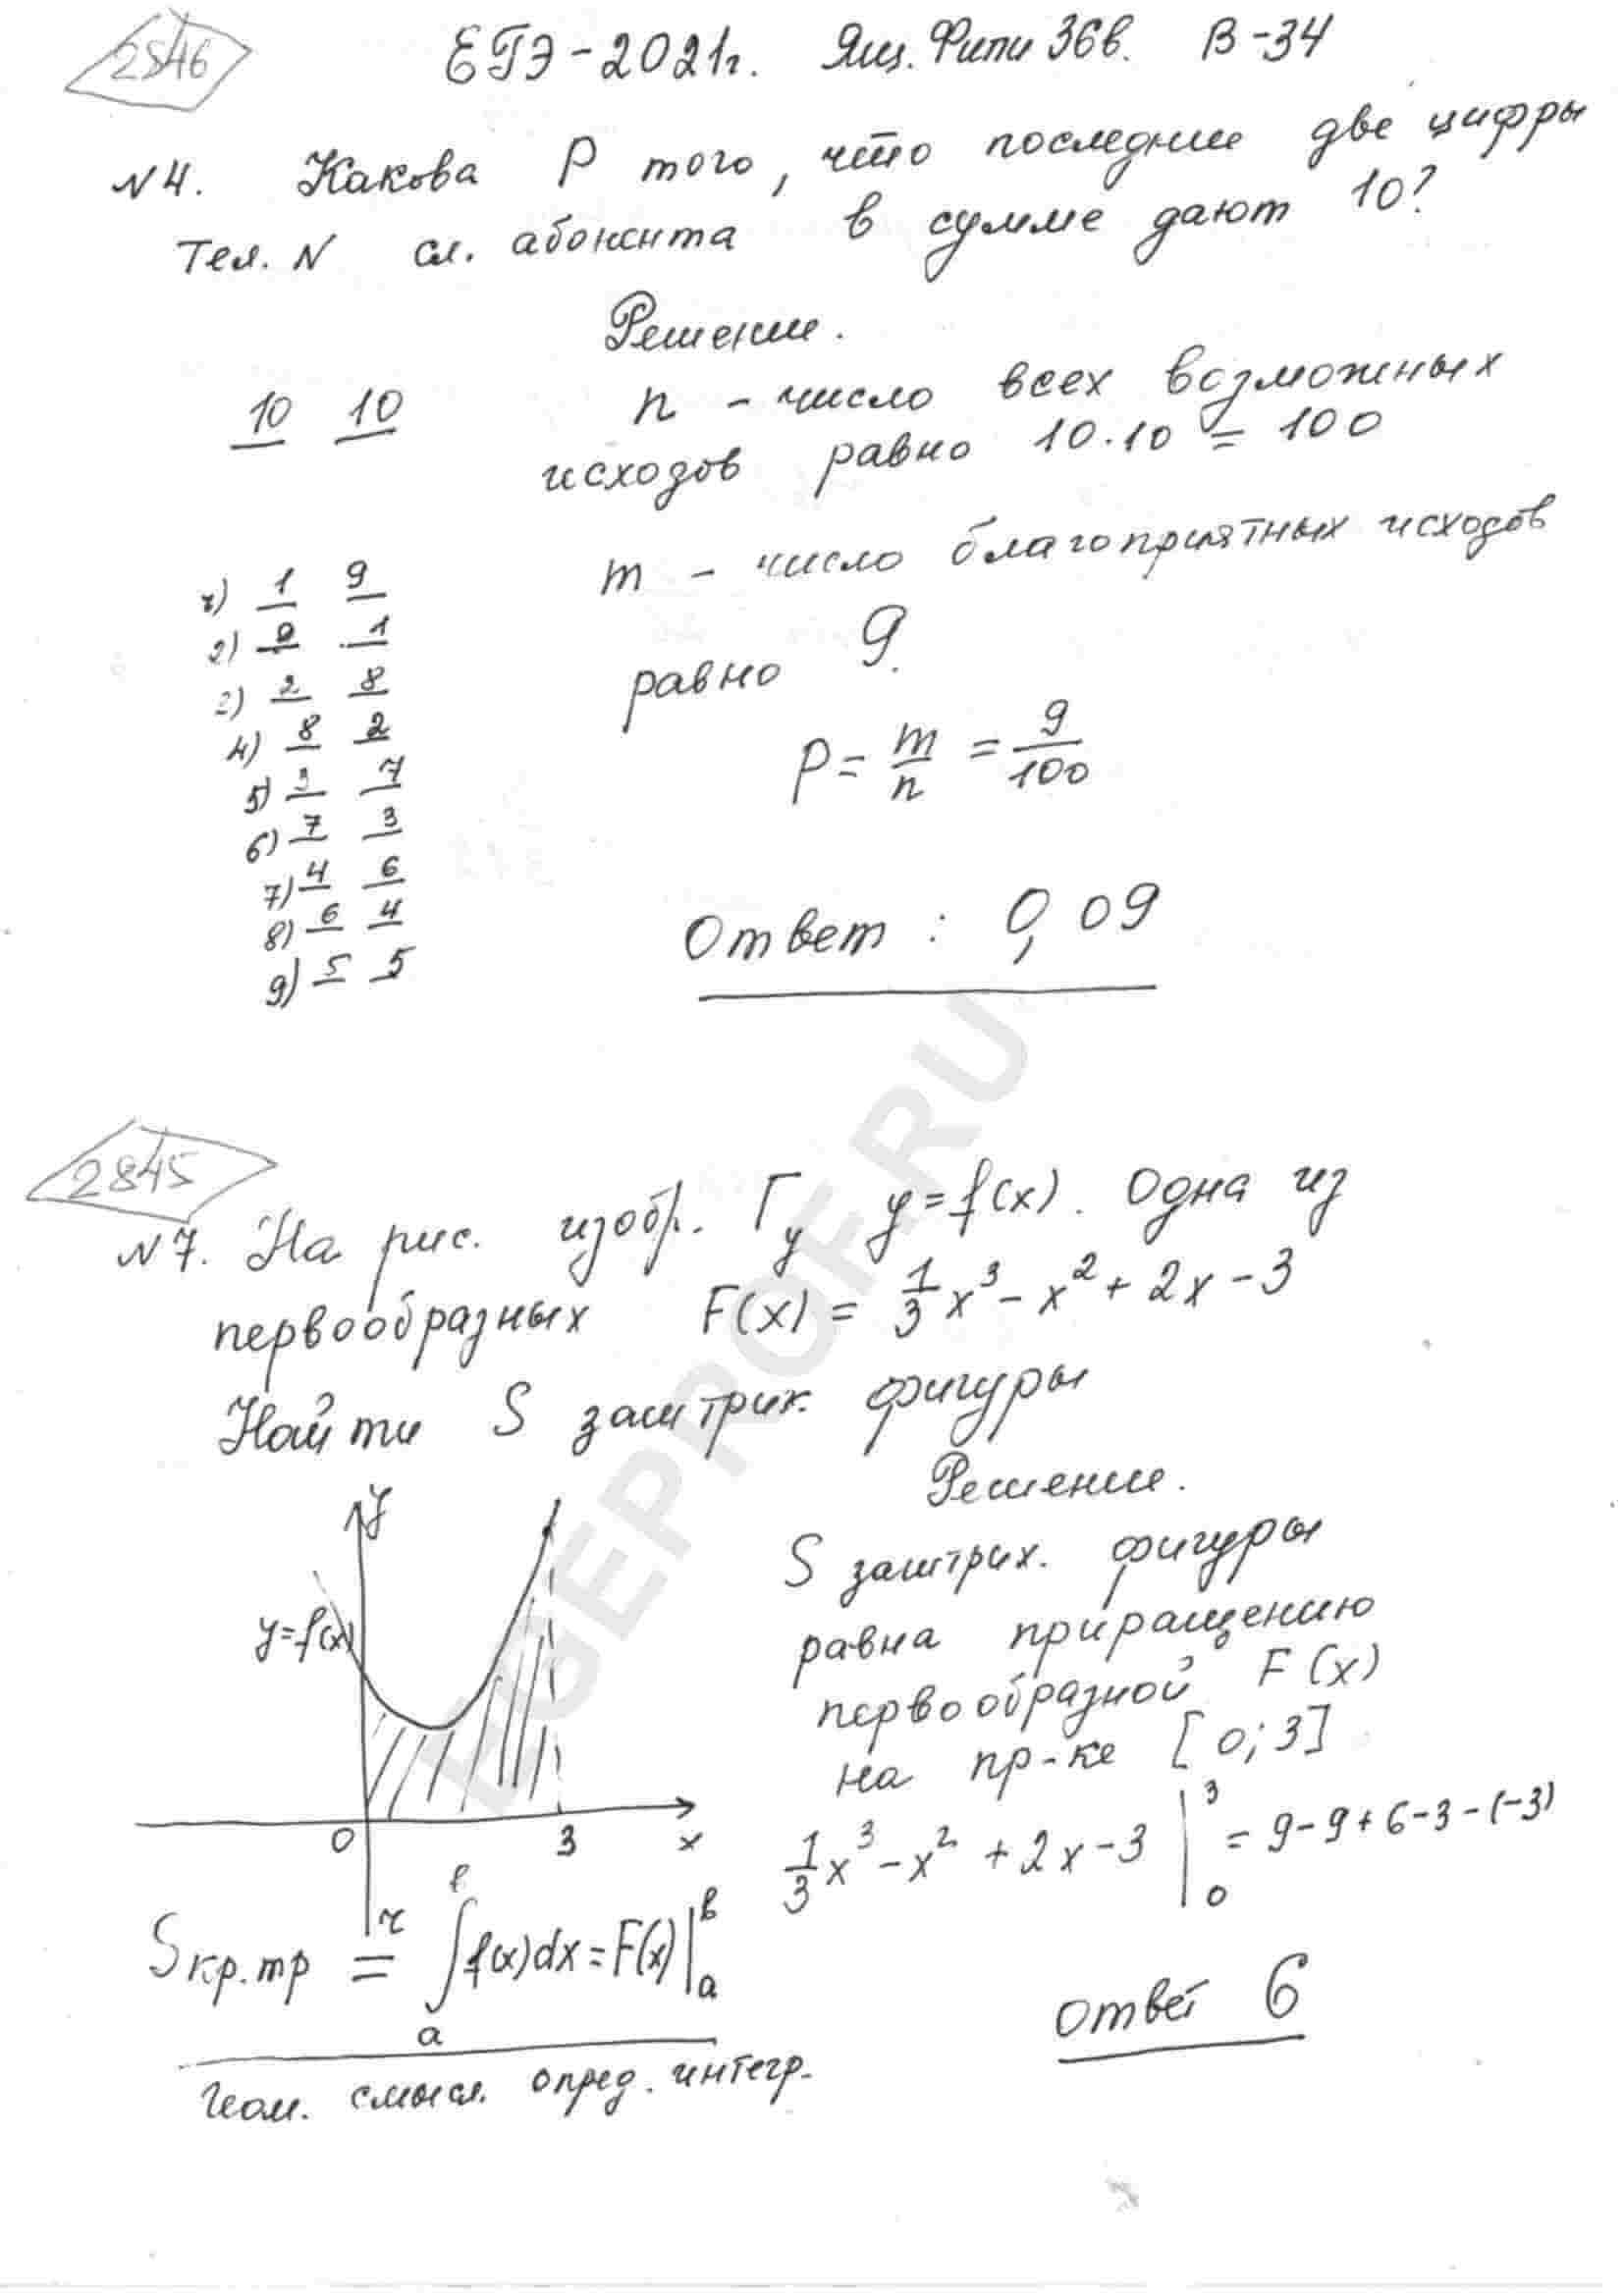 2846
ЕГЭ-2021г. Ящ. Фипи 36в. В-34
№4. Какова Р того, что последние две цифры
тел. N сл. абонента в сумме дают 10?
Решение.
10 10
n - число всех возможных
исходов равно 10·10 = 100
m - число благоприятных исходов
равно 9.
1) 1 9
2) 9 1
3) 2 8
4) 8 2
5) 3 7
6) 7 3
7) 4 6
8) 6 4
9) 5 5
P = m/n = 9/100
Ответ: 0,09
EGEPROF.RU
2845
№7. На рис. изобр. Гу y=f(x). Одна из
первообразных F(x) = 1/3 x³ - x² + 2x - 3
Найти S заштрих. фигуры
Решение.
y
y=f(x)
0 3 x
S заштрих. фигуры
равна приращению
первообразной F(x)
на пр-ке [0;3]
1/3 x³ - x² + 2x - 3 |₀³ = 9-9+6-3-(-3)
S кр.тр = ∫ₐᵇ f(x)dx = F(x)|ₐᵇ
Геом. смысл. опред. интегр.
Ответ 6